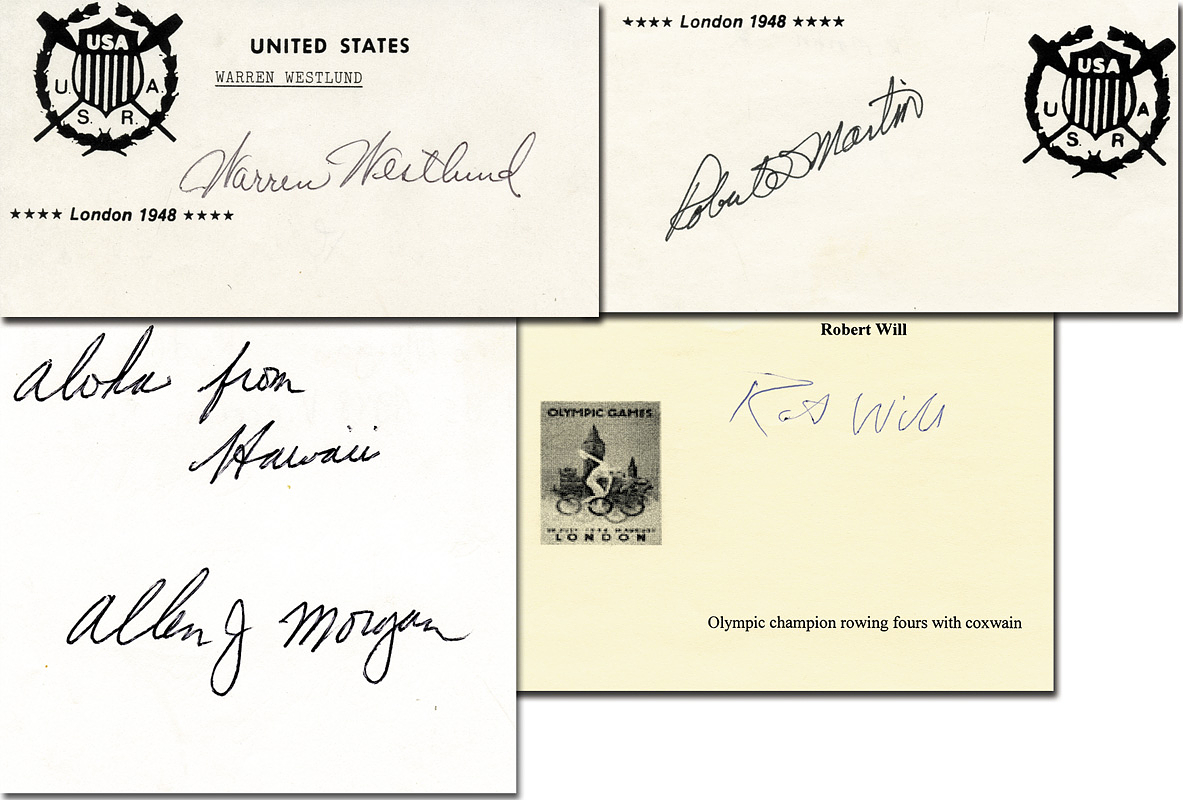 USA
U. S. R. A.
UNITED STATES
WARREN WESTLUND
Warren Westlund
★★★★ London 1948 ★★★★
★★★★ London 1948 ★★★★
USA
U S. R A
Robert Martin
aloha from
Hawaii
Allen J Morgan
Robert Will
Robt Will
OLYMPIC GAMES
LONDON
Olympic champion rowing fours with coxwain